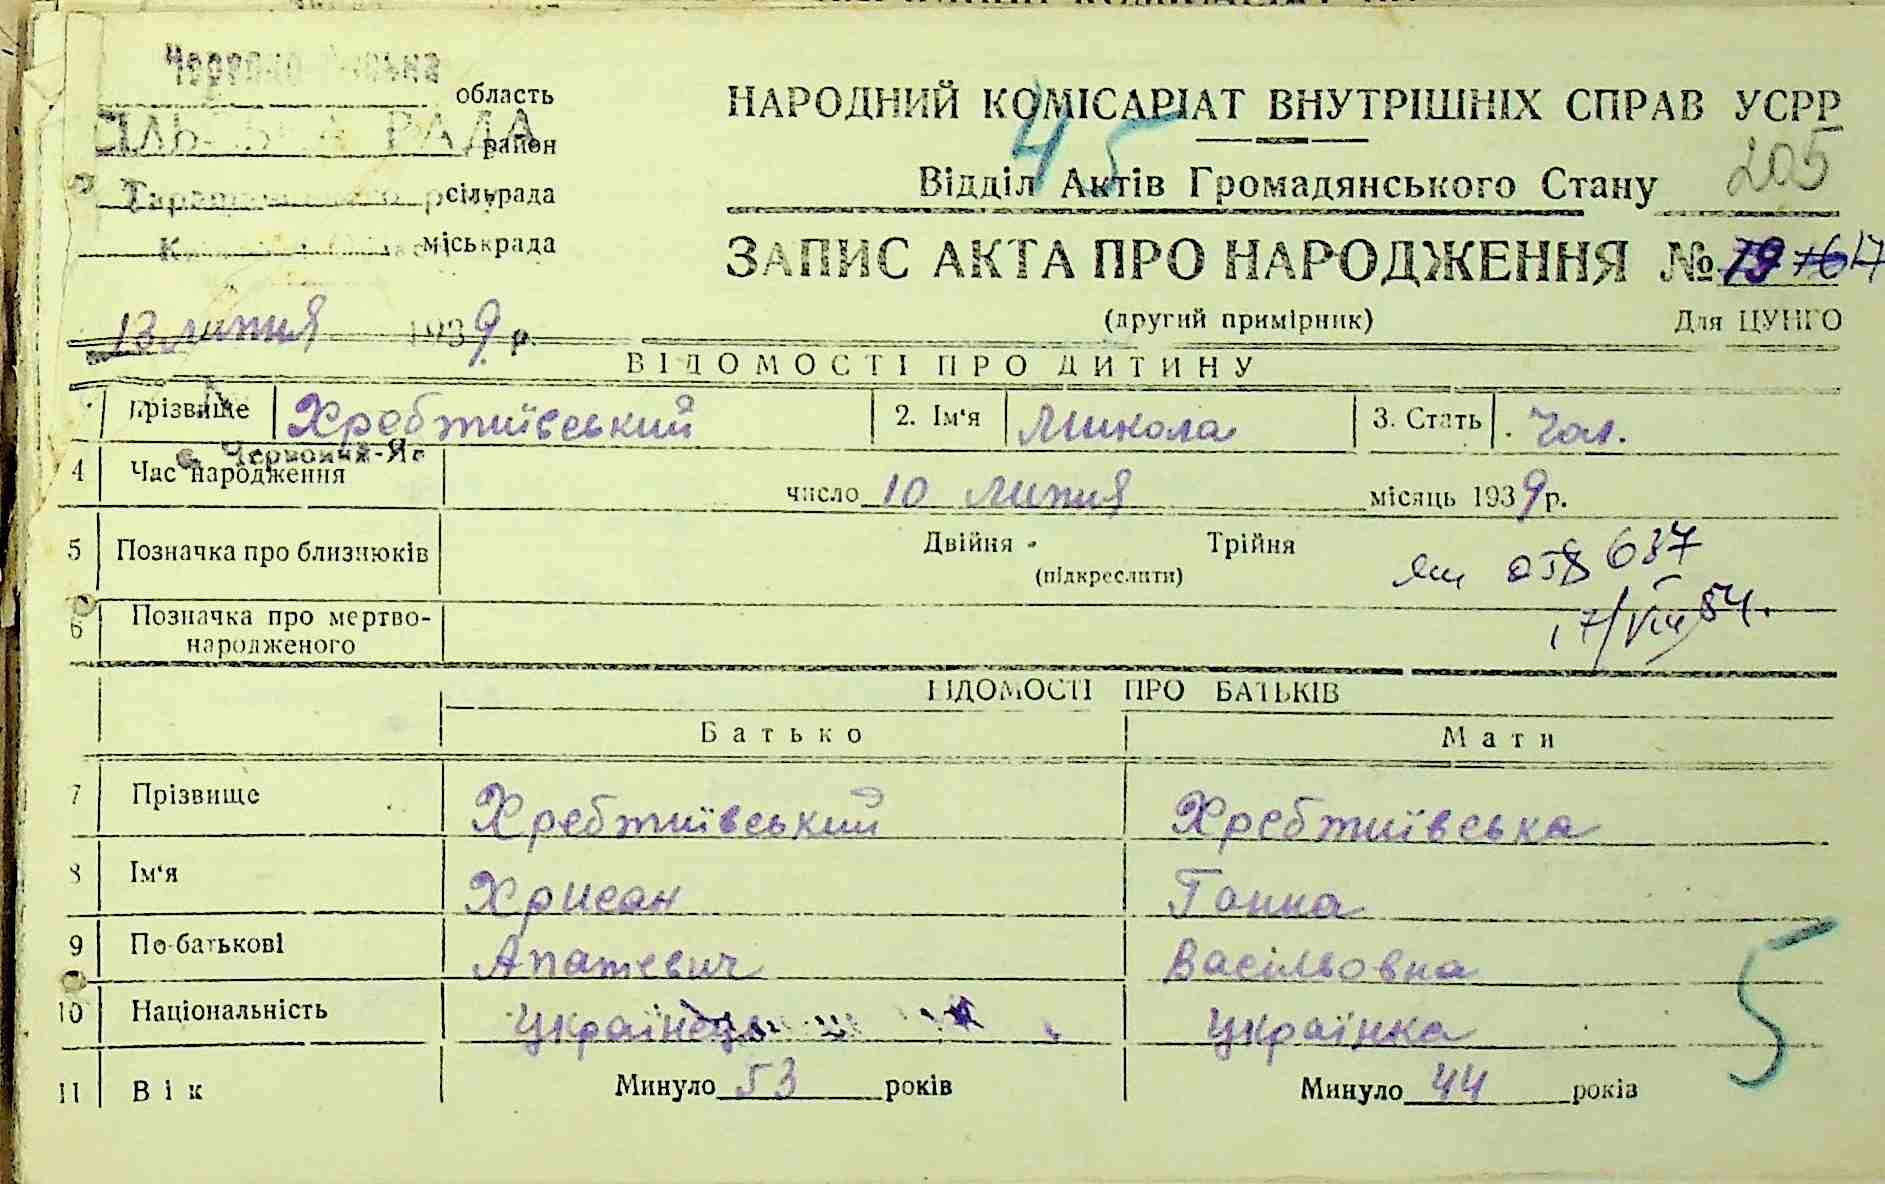 область
СІЛЬСЬКА РАДА
район
сільрада
міськрада
НАРОДНИЙ КОМІСАРІАТ ВНУТРІШНІХ СПРАВ УСРР
45
Відділ Актів Громадянського Стану 205
ЗАПИС АКТА ПРО НАРОДЖЕННЯ № 19
(другий примірник) Для ЦУНГО
13 липня 1939 р.
ВІДОМОСТІ ПРО ДИТИНУ
Прізвище Хребтиївський 2. Ім'я Микола 3. Стать Чол.
с. Червоний-Яр
4 Час народження число 10 липня місяць 1939 р.
5 Позначка про близнюків Двійня Трійня
(підкреслити)
637
6 Позначка про мертво-
народженого
17/VIII 54.
ВІДОМОСТІ ПРО БАТЬКІВ
Батько Мати
7 Прізвище Хребтиївський Хребтиївська
8 Ім'я Хрисан Ганна
9 По-батькові Апатевич Васільовна
10 Національність Українець Українка
5
11 Вік Минуло 53 років Минуло 44 років